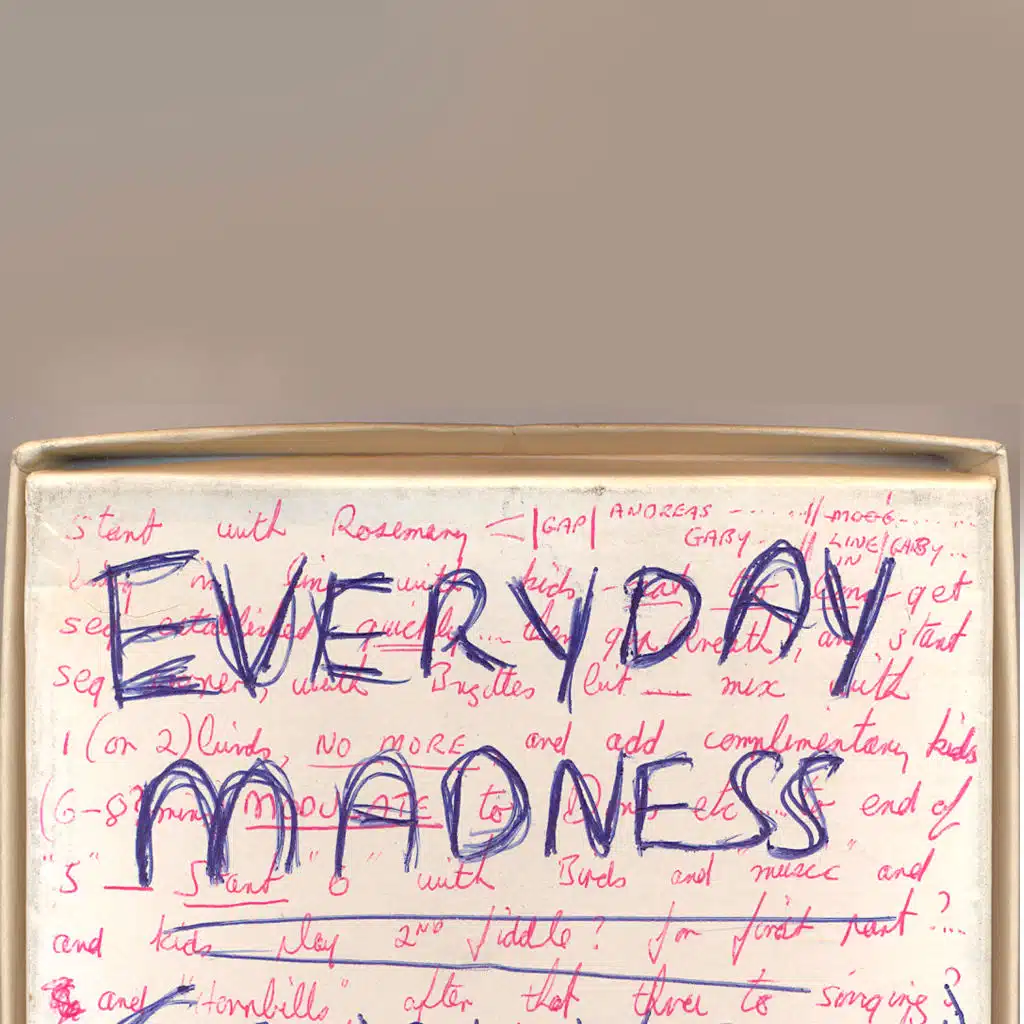 Start with Rosemary <|GAP| ANDREAS ........ // MOOG ......
GABY .. // LINE/GABY ...
IN
EVERYDAY
in line with kids - get
seq established quickly ... then gap (breath), and start
seq with Brigittes but __ mix with
1 (or 2) birds, NO MORE and add complimentary kids
MADNESS
(6-8? mins MODULATE to etc ... to end of
"5" __ Start "6" with Birds and "music" and
and kids play 2ND fiddle? for first part? ....
and "Hornbills" after that three to singing?